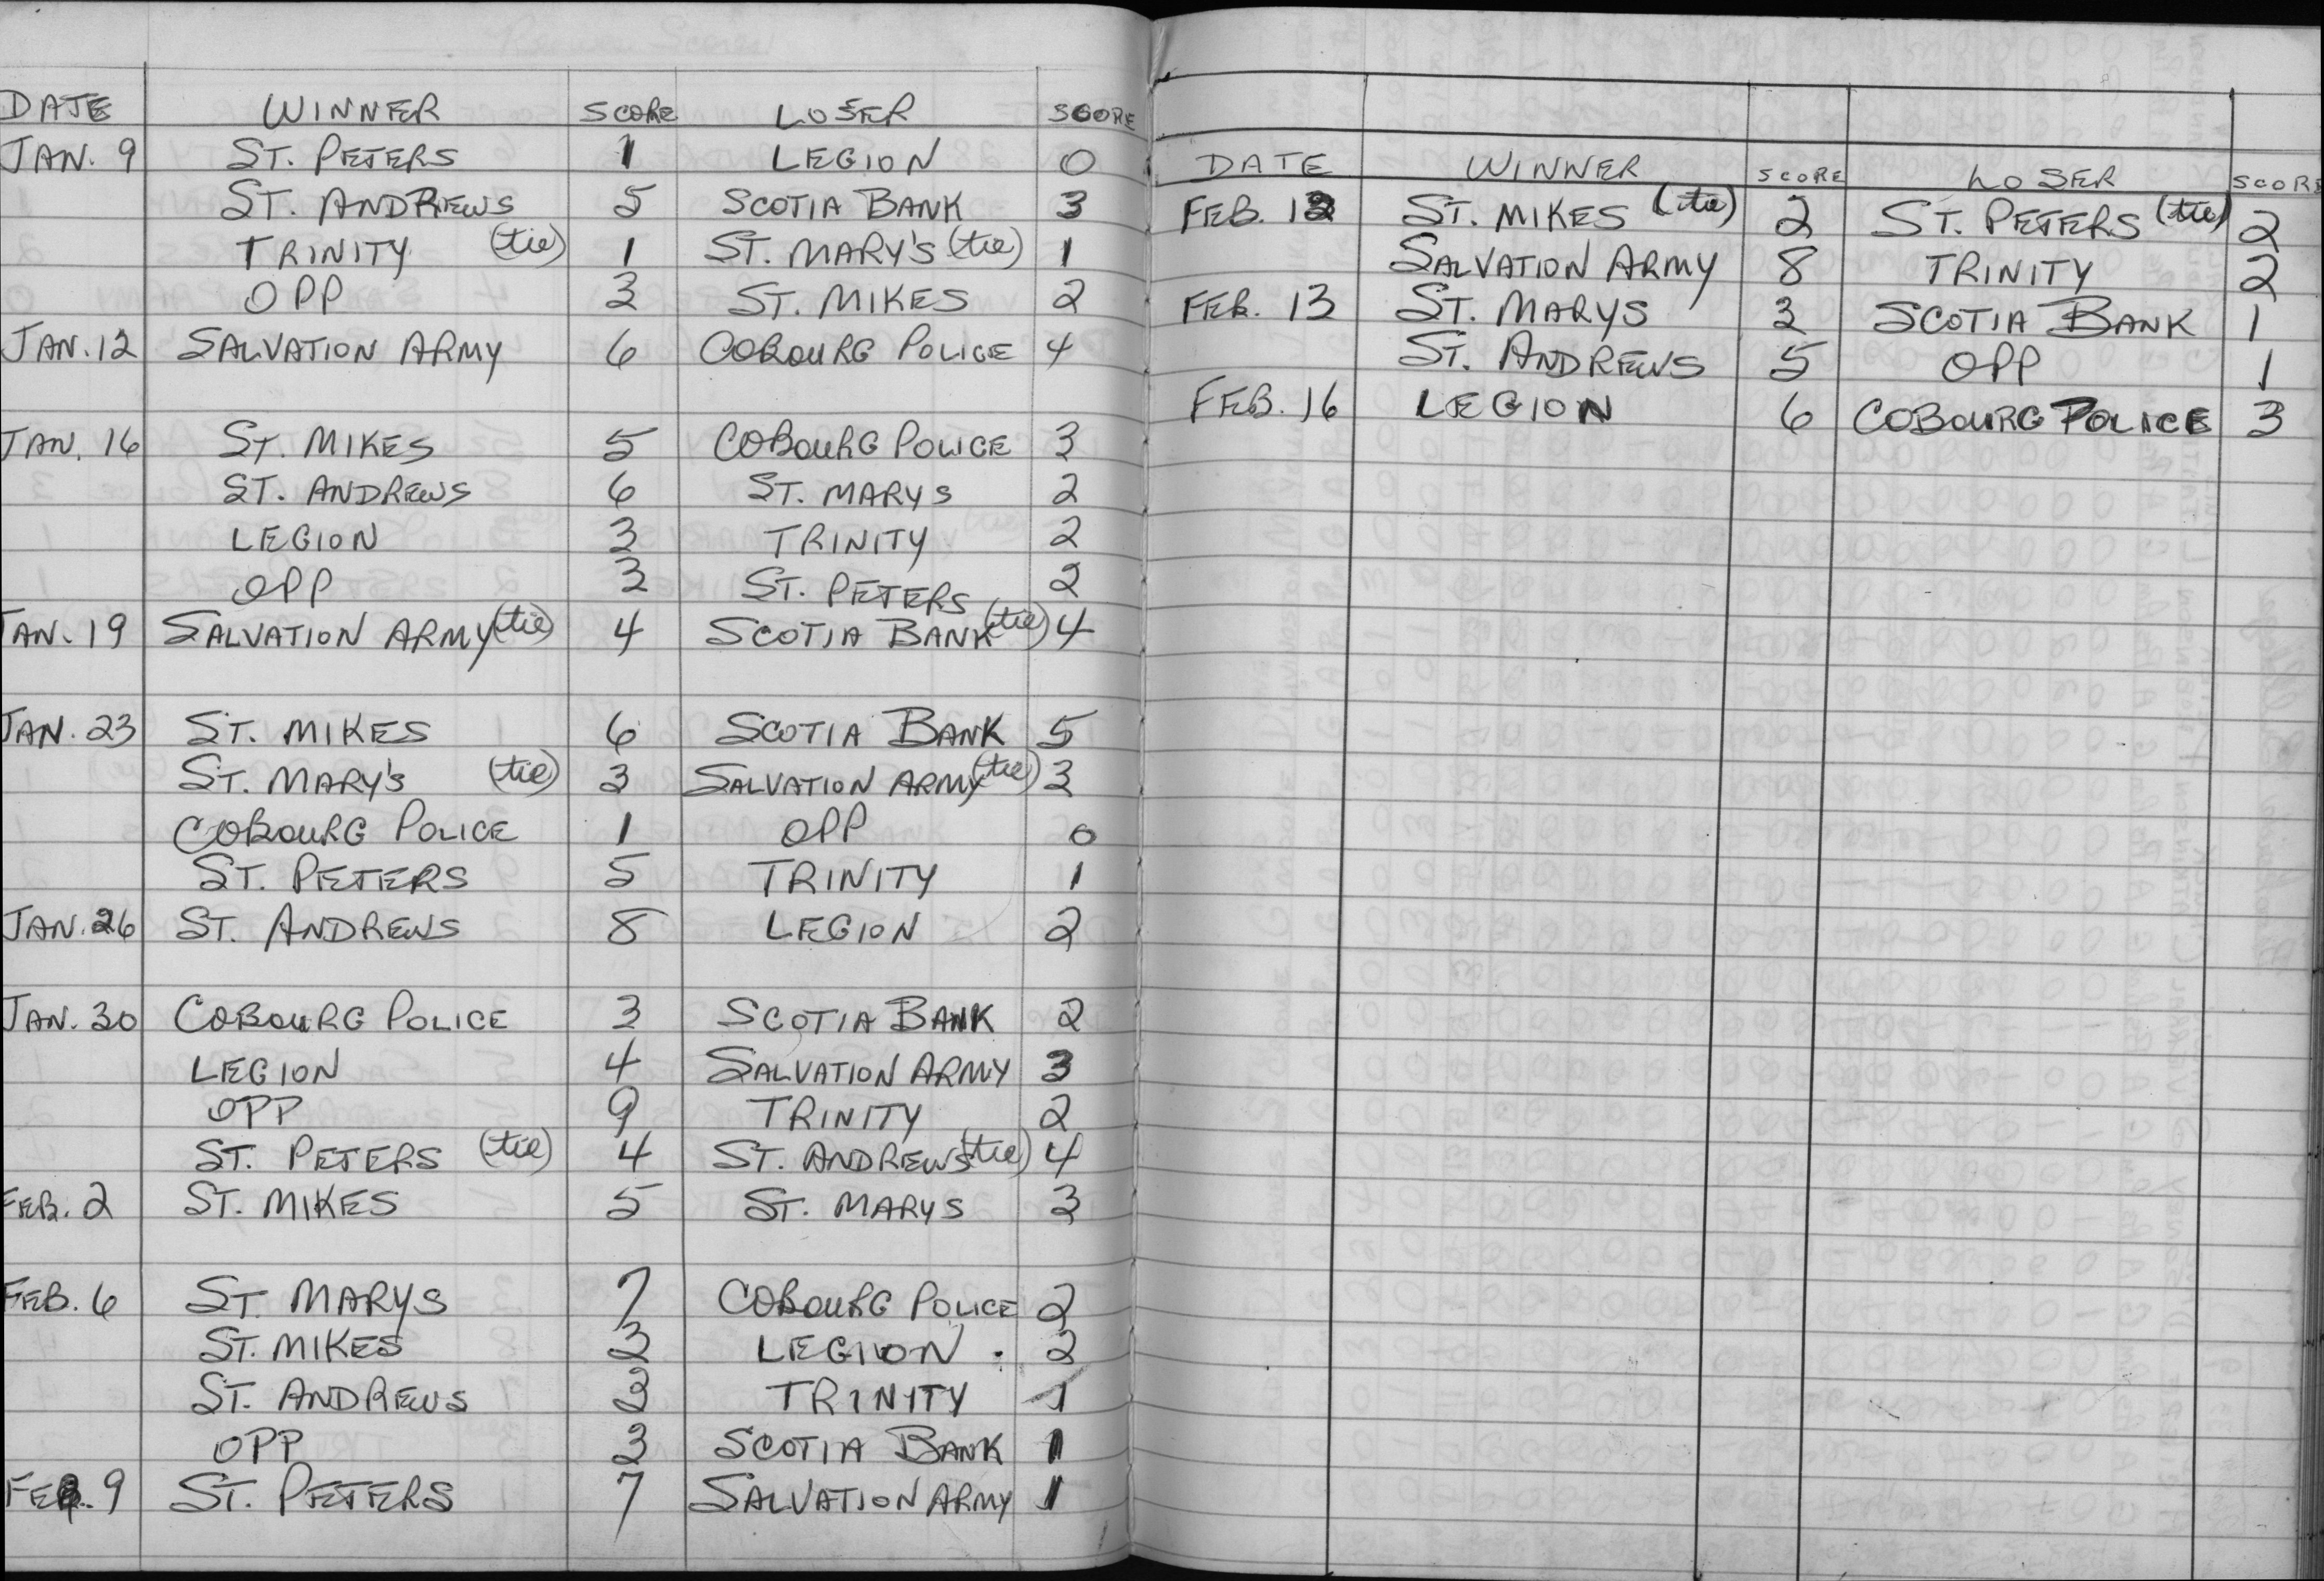 DATE WINNER SCORE LOSER SCORE
JAN. 9 ST. PETERS 1 LEGION 0
ST. ANDREWS 5 SCOTIA BANK 3
TRINITY (tie) 1 ST. MARY'S (tie) 1
OPP 3 ST. MIKES 2
JAN. 12 SALVATION ARMY 6 COBOURG POLICE 4
JAN. 16 ST. MIKES 5 COBOURG POLICE 3
ST. ANDREWS 6 ST. MARYS 2
LEGION 3 TRINITY 2
OPP 3 ST. PETERS 2
JAN. 19 SALVATION ARMY (tie) 4 SCOTIA BANK (tie) 4
JAN. 23 ST. MIKES 6 SCOTIA BANK 5
ST. MARY'S (tie) 3 SALVATION ARMY (tie) 3
COBOURG POLICE 1 OPP 0
ST. PETERS 5 TRINITY 1
JAN. 26 ST. ANDREWS 8 LEGION 2
JAN. 30 COBOURG POLICE 3 SCOTIA BANK 2
LEGION 4 SALVATION ARMY 3
OPP 9 TRINITY 2
ST. PETERS (tie) 4 ST. ANDREWS (tie) 4
FEB. 2 ST. MIKES 5 ST. MARYS 3
FEB. 6 ST. MARYS 7 COBOURG POLICE 2
ST. MIKES 3 LEGION . 2
ST. ANDREWS 3 TRINITY 1
OPP 3 SCOTIA BANK 1
FEB. 9 ST. PETERS 7 SALVATION ARMY 1
DATE WINNER SCORE LOSER SCORE
FEB. 12 ST. MIKES (tie) 2 ST. PETERS (tie) 2
SALVATION ARMY 8 TRINITY 2
FEB. 13 ST. MARYS 3 SCOTIA BANK 1
ST. ANDREWS 5 OPP 1
FEB. 16 LEGION 6 COBOURG POLICE 3